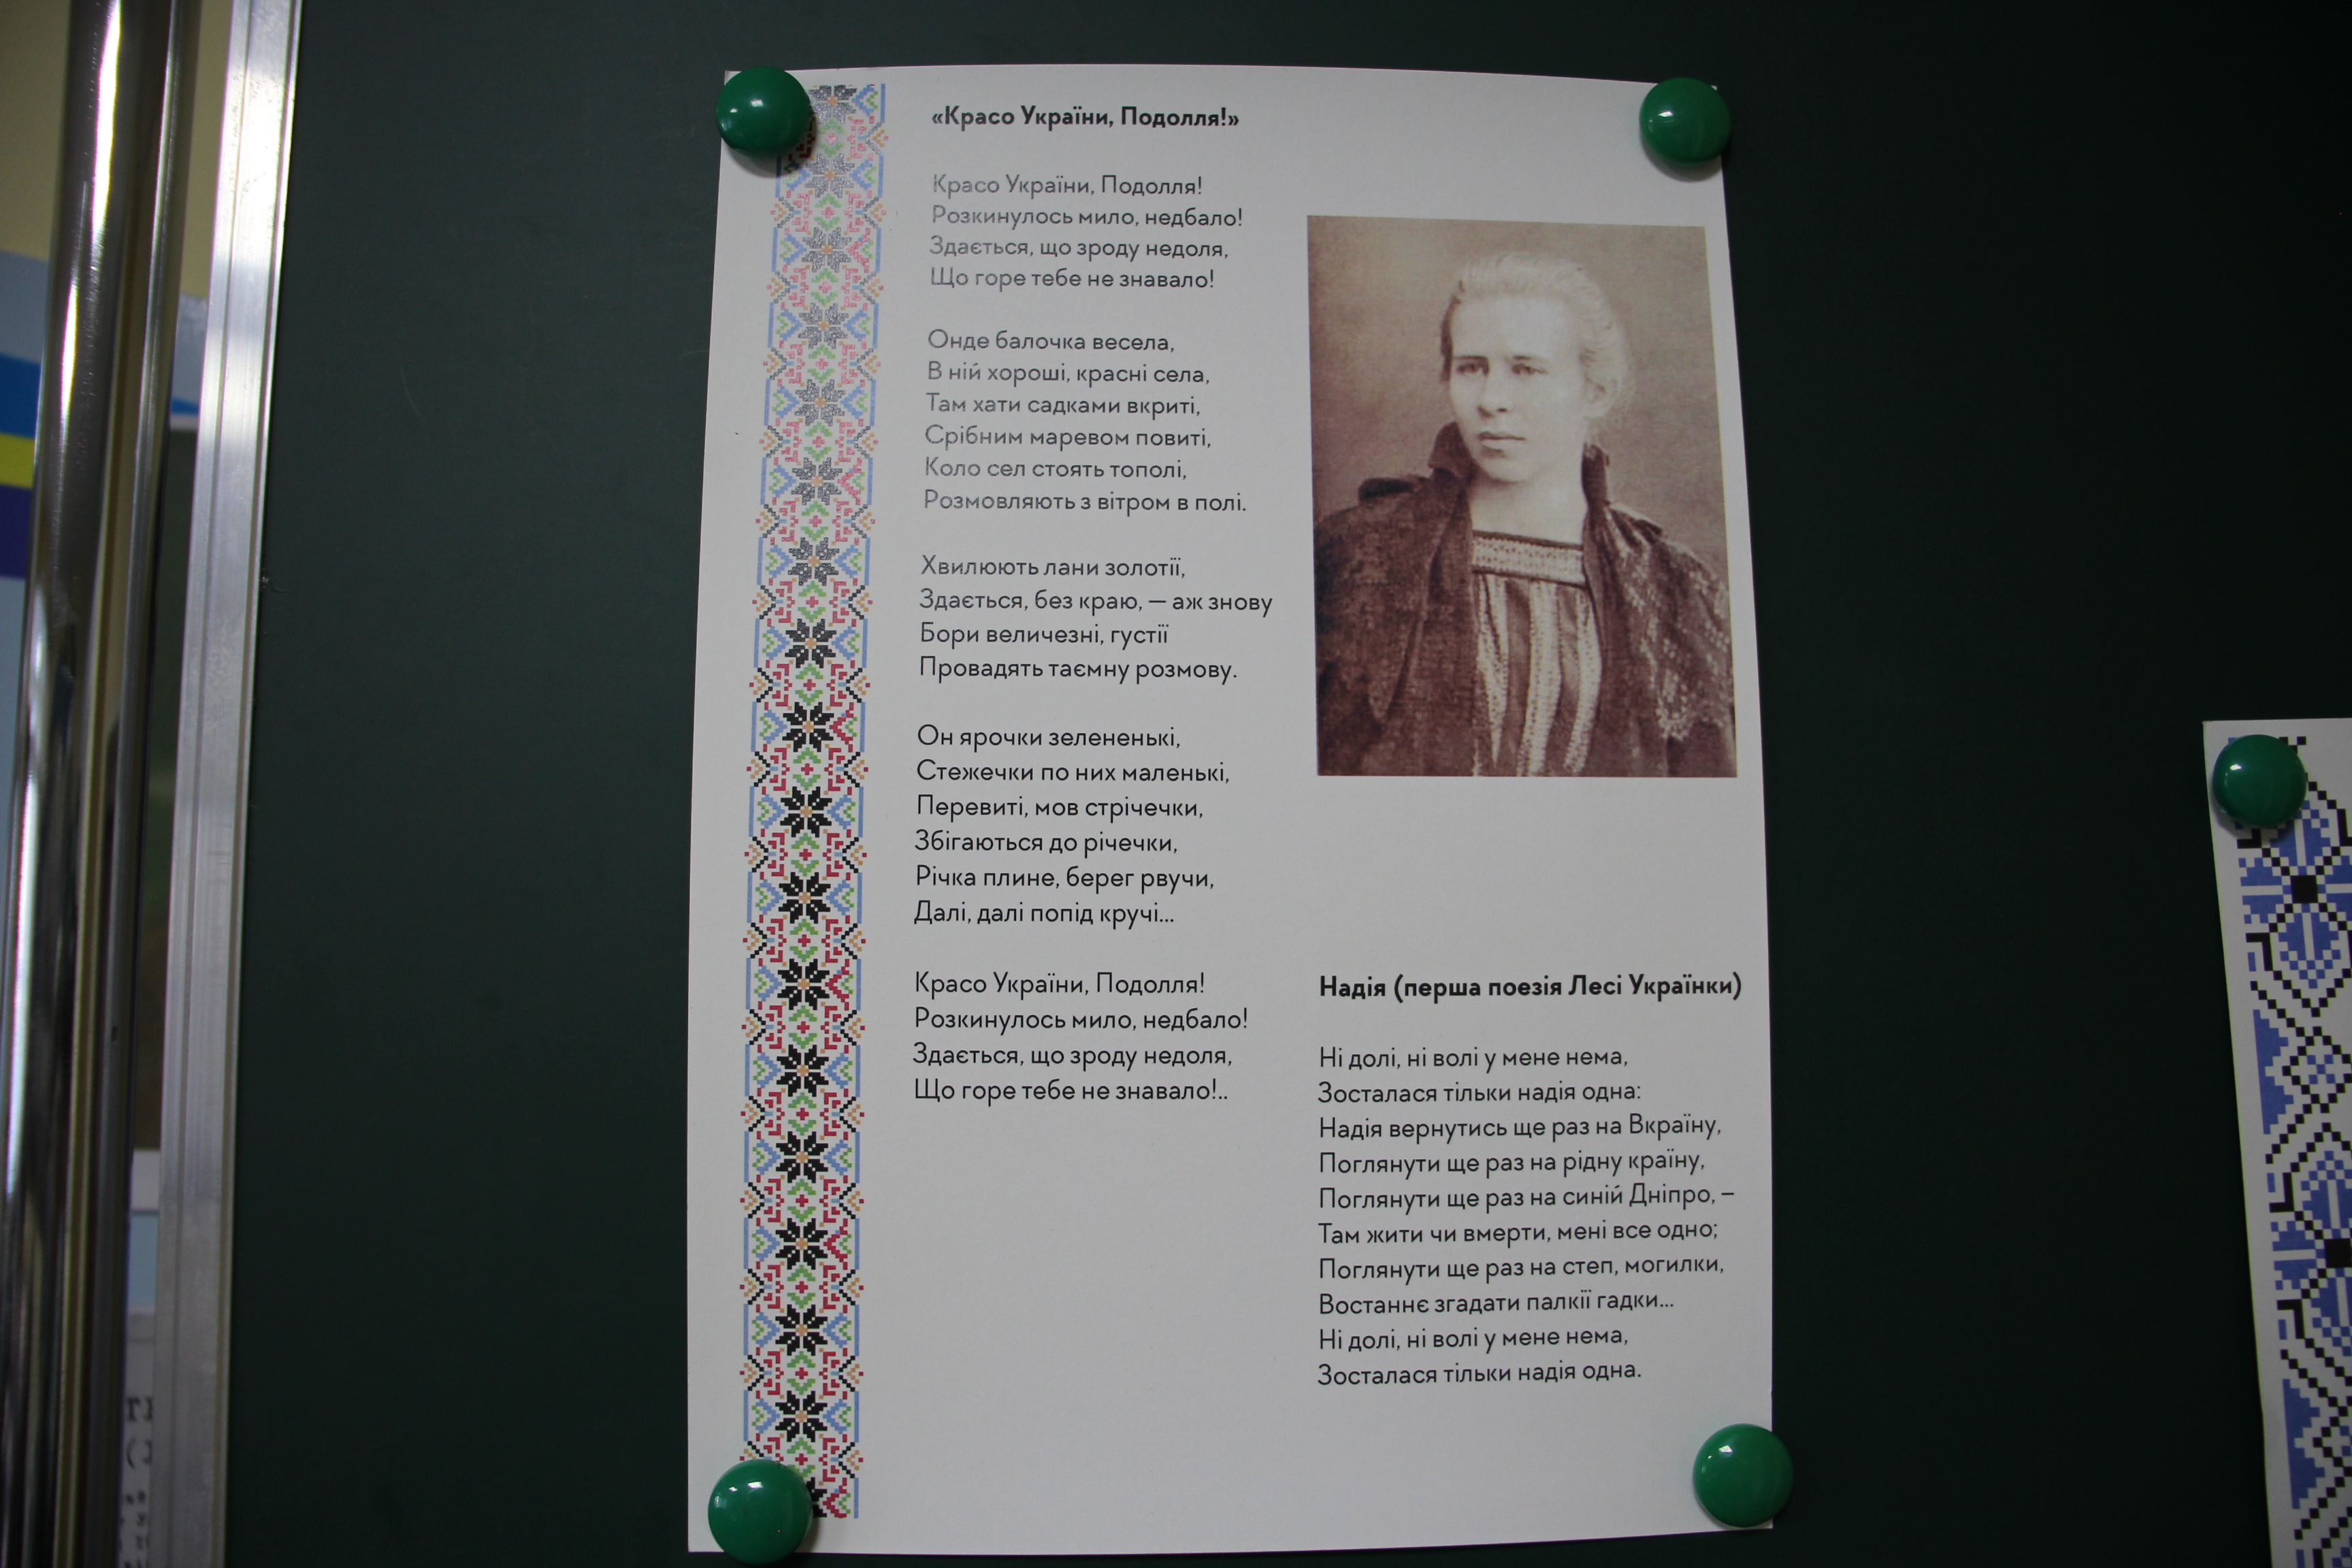 «Красо України, Подолля!»
Красо України, Подолля!
Розкинулось мило, недбало!
Здається, що зроду недоля,
Що горе тебе не знавало!
Онде балочка весела,
В ній хороші, красні села,
Там хати садками вкриті,
Срібним маревом повиті,
Коло сел стоять тополі,
Розмовляють з вітром в полі.
Хвилюють лани золотії,
Здається, без краю, — аж знову
Бори величезні, густії
Провадять таємну розмову.
Он ярочки зелененькі,
Стежечки по них маленькі,
Перевиті, мов стрічечки,
Збігаються до річечки,
Річка плине, берег рвучи,
Далі, далі попід кручі...
Красо України, Подолля!
Розкинулось мило, недбало!
Здається, що зроду недоля,
Що горе тебе не знавало!..
Надія (перша поезія Лесі Українки)
Ні долі, ні волі у мене нема,
Зосталася тільки надія одна:
Надія вернутись ще раз на Вкраїну,
Поглянути ще раз на рідну країну,
Поглянути ще раз на синій Дніпро, –
Там жити чи вмерти, мені все одно;
Поглянути ще раз на степ, могилки,
Востаннє згадати палкії гадки...
Ні долі, ні волі у мене нема,
Зосталася тільки надія одна.